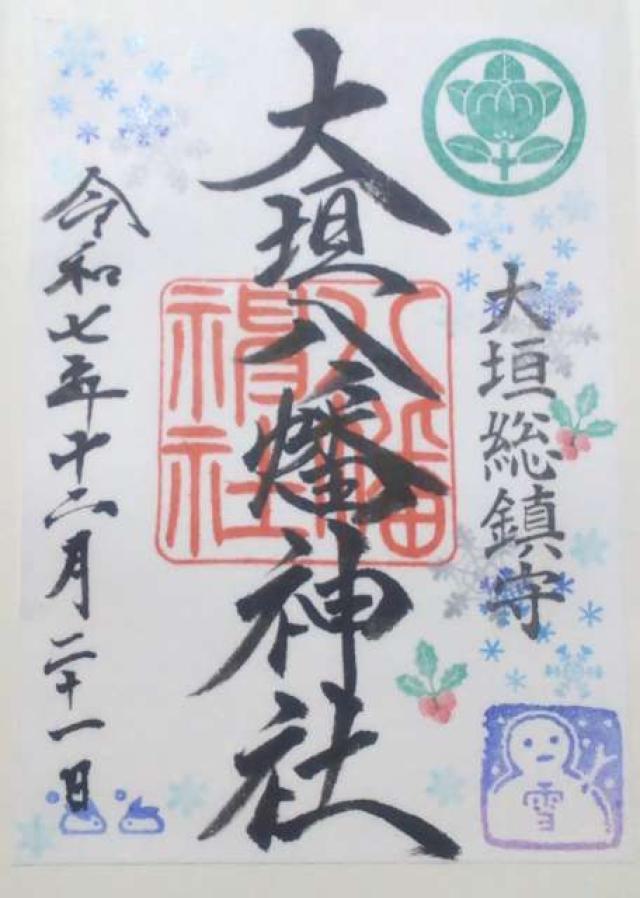 大垣総鎮守
大垣八幡神社
八幡
神社
令和七年十二月二十一日
雪